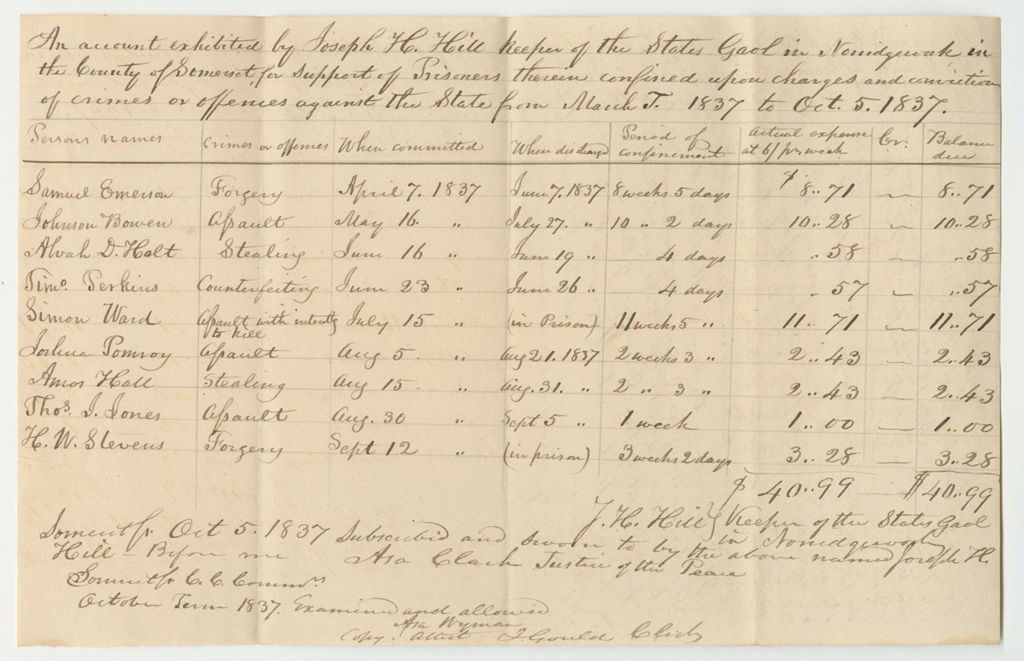 An account exhibited by Joseph H. Hill keeper of the States Gaol in Norridgewock in
the County of Somerset, for support of Prisoners therein confined upon charges and conviction
of crimes or offences against the State from March T. 1837 to Oct. 5. 1837.
Persons names Crimes or offences When committed When discharged Period of confinement Actual expense at 6/ pr. week Cr. Balance due
Samuel Emerson Forgery April 7. 1837 June 7. 1837 8 weeks 5 days $ 8..71 — 8..71
Johnson Bowen Assault May 16. " July 27. " 10 " 2 days 10..28 — 10..28
Alvah D. Holt Stealing June 16 " June 19 " 4 days ..58 — ..58
Timo. Perkins Counterfeiting June 23 " June 26 " 4 days ..57 — ..57
Simon Ward Assault with intent to kill July 15 " (in Prison) 11 weeks 5 " 11..71 — 11..71
Joshua Pomroy Assault Aug 5. " Aug 21. 1837 2 weeks 3 " 2..43 — 2..43
Amos Hall Stealing Aug 15. " Aug. 31. " 2 " 3 " 2..43 — 2..43
Thos. J. Jones Assault Aug. 30 " Sept 5 " 1 week 1..00 — 1..00
H. W. Stevens Forgery Sept 12 " (in prison) 3 weeks 2 days 3..28 — 3..28
$ 40..99 — $40..99
J. H. Hill Keeper of the States Gaol
in Norridgewock
Somerset ss. Oct 5. 1837 Subscribed and sworn to by the above named Joseph H.
Hill – Before me Asa Clark Justice of the Peace
Somerset ss C. C. Commrs.
October Term 1837. Examined and allowed
Asa Wyman
Copy. Attest J Gould Clerk